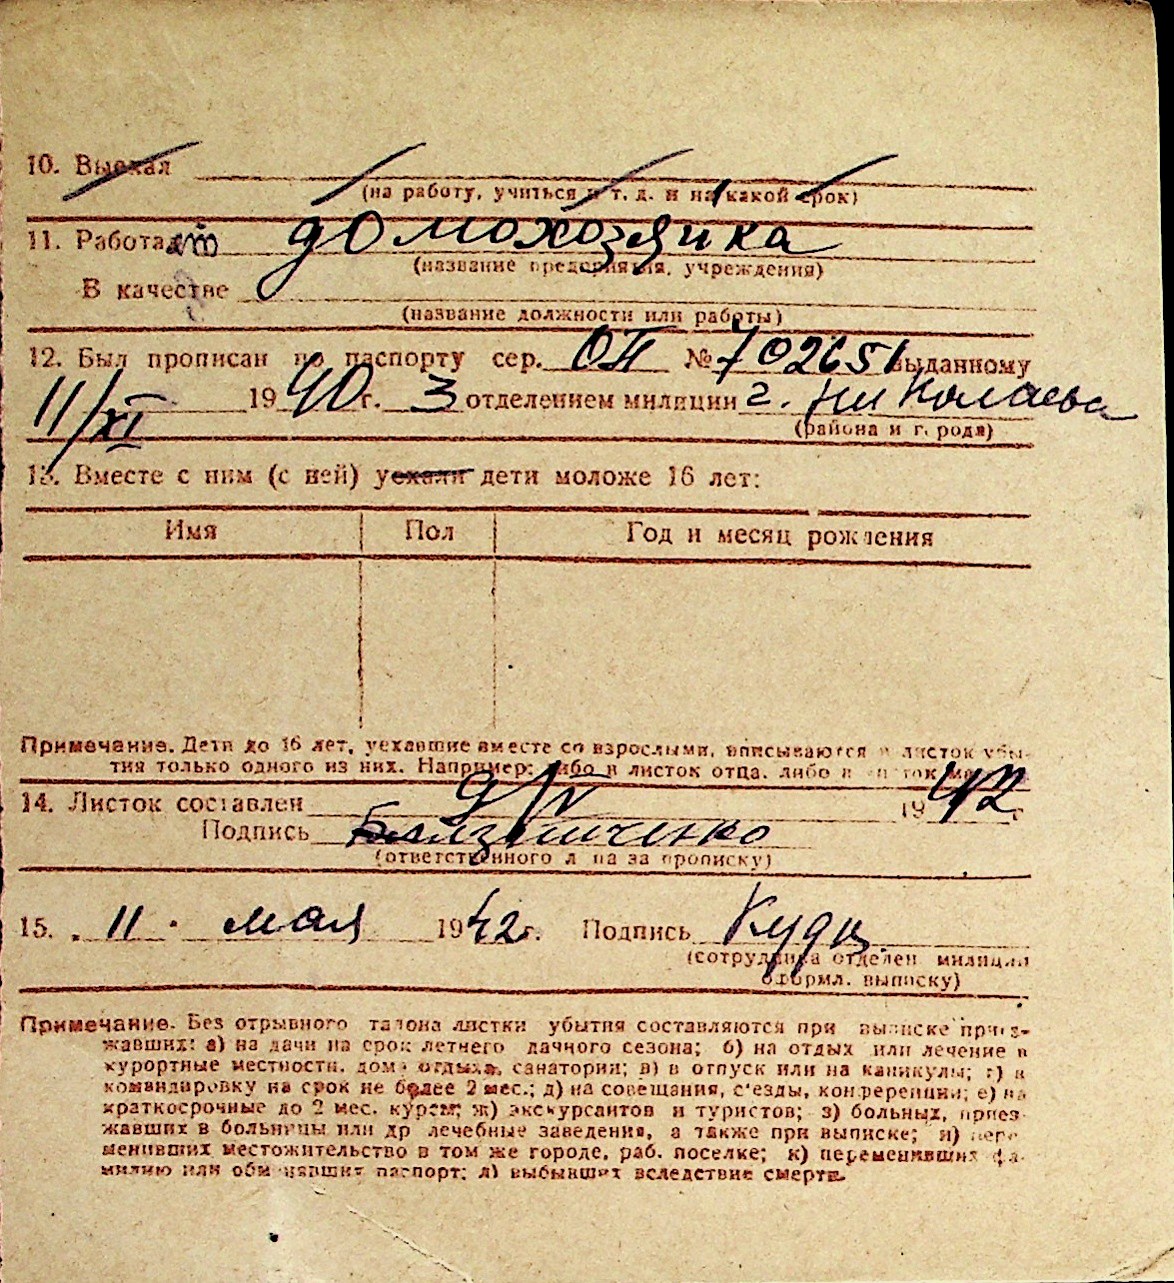 10. Выехал
(на работу, учиться и т. д. и на какой срок)
11. Работает домохозяйка
(название предприятия, учреждения)
В качестве
(название должности или работы)
12. Был прописан по паспорту сер. ОП № 702651 выданному
11/XI 1940 г. 3 отделением милиции г. Николаева
(района и города)
13. Вместе с ним (с ней) уехали дети моложе 16 лет:
Имя Пол Год и месяц рождения
Примечание. Дети до 16 лет, уехавшие вместе со взрослыми, вписываются в листок убы-
тия только одного из них. Например: либо в листок отца, либо в листок
14. Листок составлен 9/V 1942 г.
Подпись
(ответственного лица за прописку)
15. 11 · мая 1942 г. Подпись Кудн
(сотрудника отделен. милиции
оформл. выписку)
Примечание. Без отрывного талона листки убытия составляются при выписке приез-
жавших: а) на дачи на срок летнего дачного сезона; б) на отдых или лечение в
курортные местности, дома отдыха, санатории; в) в отпуск или на каникулы; г) в
командировку на срок не более 2 мес.; д) на совещания, с'езды, конференции; е) на
краткосрочные до 2 мес. курсы; ж) экскурсантов и туристов; з) больных, приез-
жавших в больницы или др лечебные заведения, а также при выписке; и) пере-
менивших местожительство в том же городе, раб. поселке; к) переменивших фа-
милию или обменявших паспорт; л) выбывших вследствие смерти.